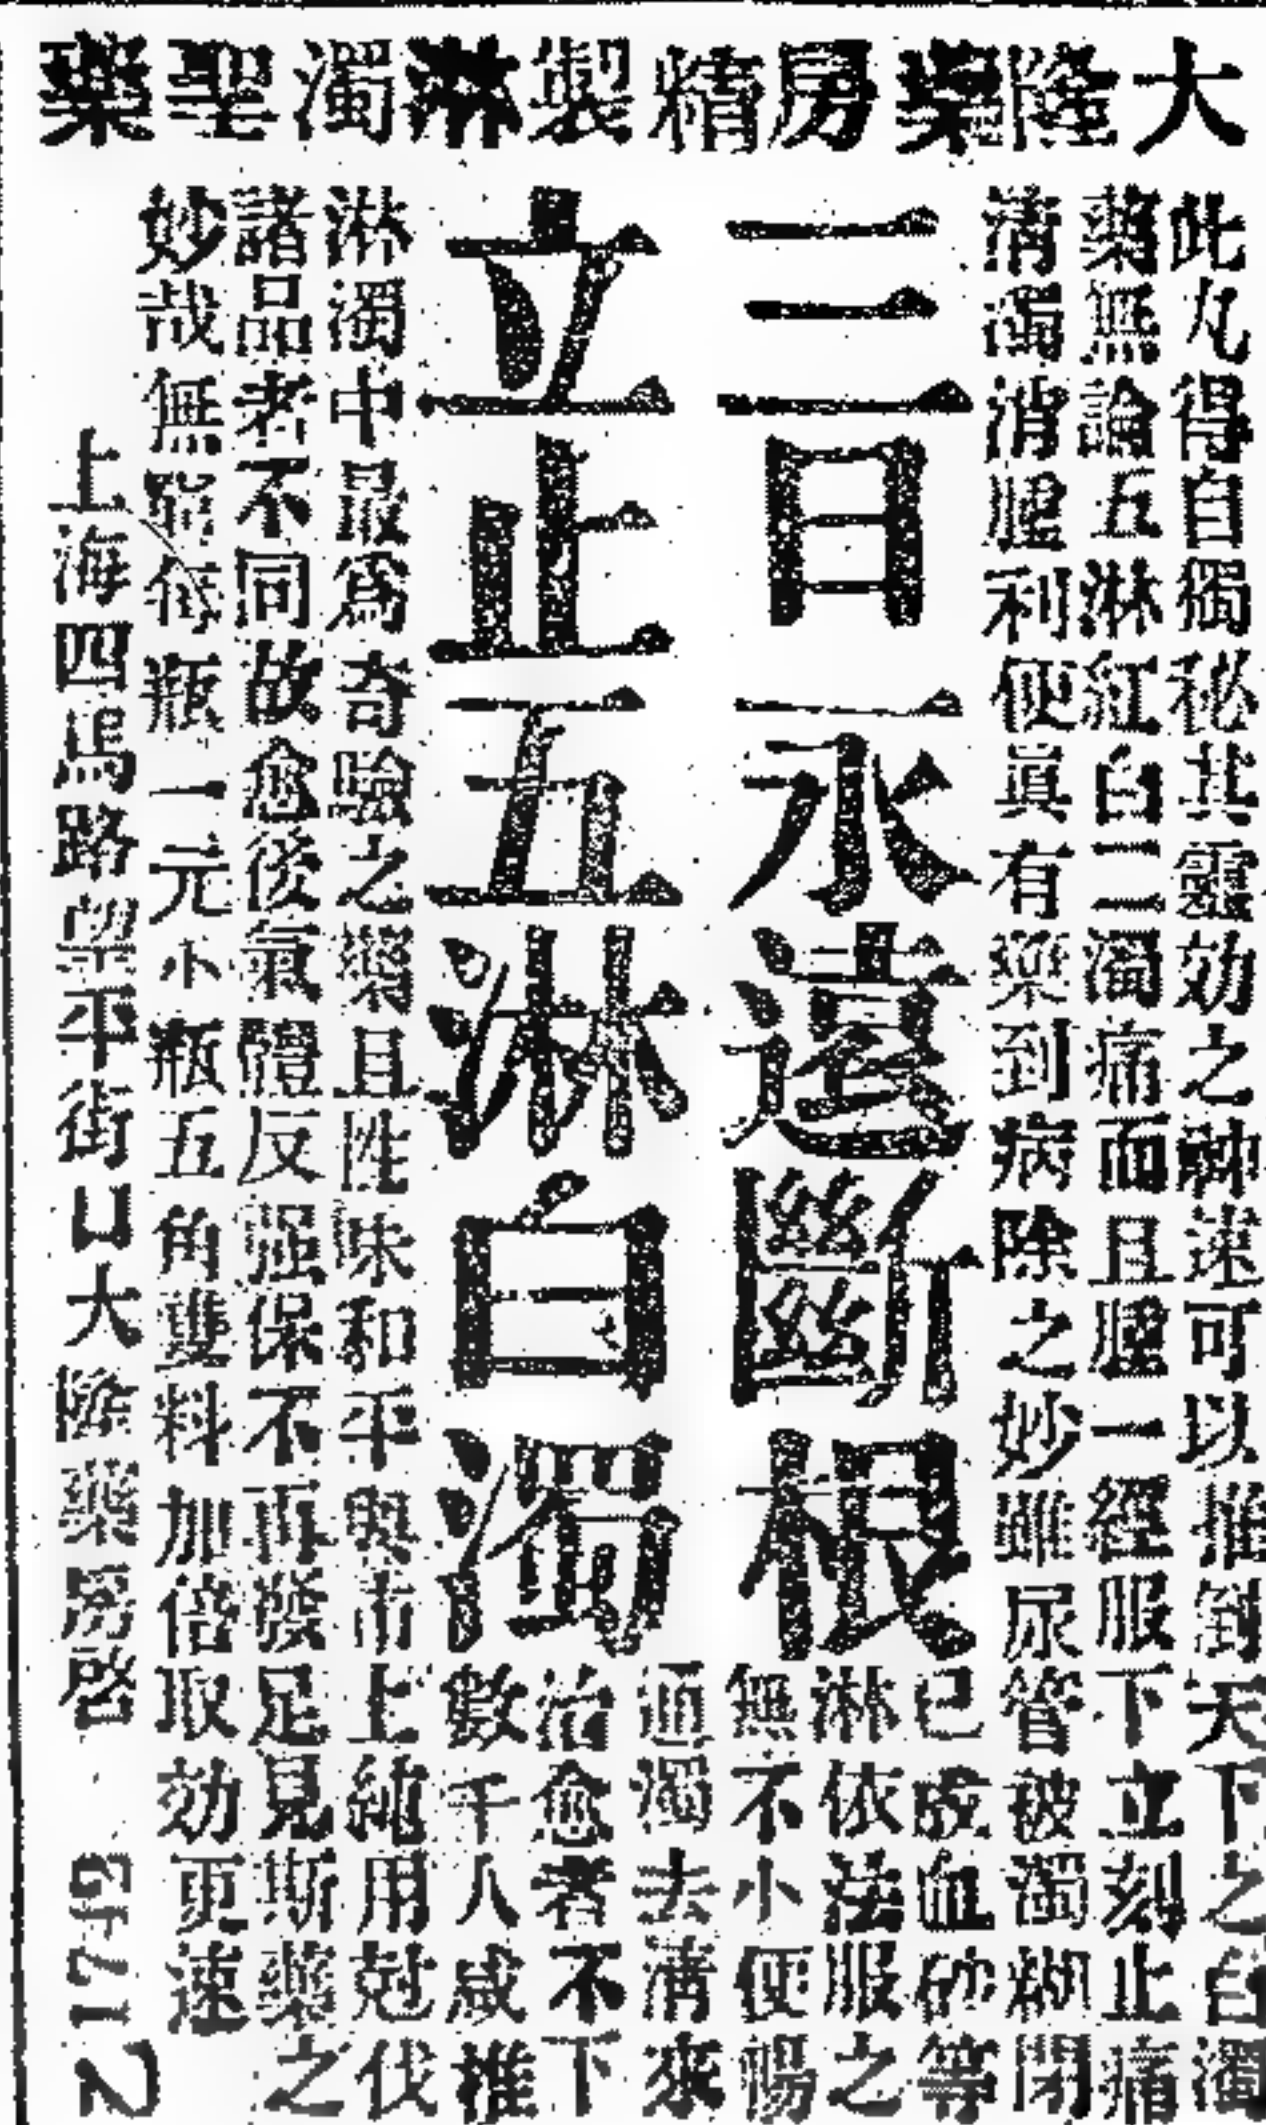 大隆藥房精製淋濁聖藥
此丸得自獨秘其靈効之神速可以推倒天下之白濁
藥無論五淋紅白二濁痛而且腫一經服下立刻止痛
清濁消腫利便眞有藥到病除之妙雖尿管被濁糊閉
已成血砂等
淋依法服之
無不小便暢
通濁去淸來
治愈者不下
數千人咸推
三日永遠斷根
立止五淋白濁
淋濁中最爲奇騐之藥且性味和平與市上純用尅伐
諸品者不同故愈後氣體反强保不再發足見斯藥之
妙哉無窮每瓶一元小瓶五角雙料加倍取効更速
上海四馬路望平街口大隆藥房啓